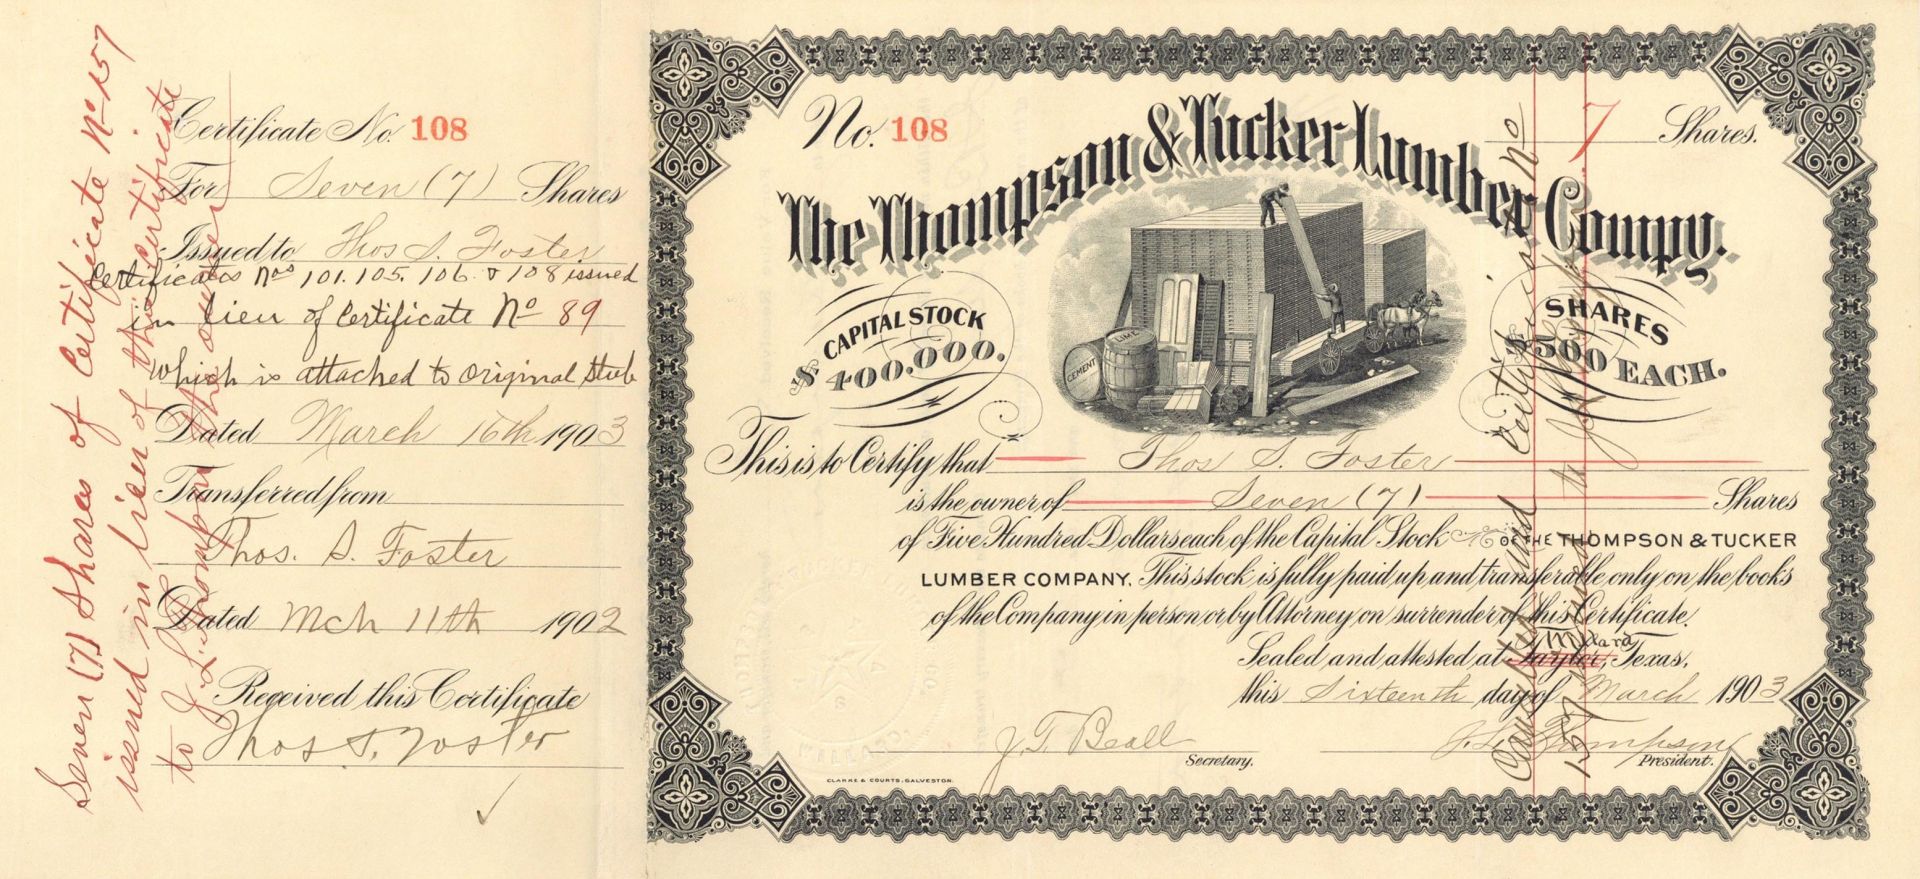 Certificate No. 108
For Seven (7) Shares
Issued to Thos S. Foster
Certificates Nos 101. 105. 106. & 108 issued
in lieu of Certificate No 89
which is attached to original Stub
Dated March 16th 1903
Transferred from
Thos. S. Foster
Dated Mch 11th 1902
Received this Certificate
Thos. S. Foster
Seven (7) Shares of Certificate No 157
issued in lieu of this certificate
to J. L. Thompson the owner
No. 108
7 Shares.
The Thompson & Tucker Lumber Compy.
CAPITAL STOCK
$400.000.
CEMENT
LIME
SHARES
$500 EACH.
This is to Certify that Thos S. Foster
is the owner of Seven (7) Shares
of Five Hundred Dollars each of the Capital Stock OF THE THOMPSON & TUCKER
LUMBER COMPANY. This stock is fully paid up and transferable only on the books
of the Company in person or by Attorney on surrender of this Certificate.
Willard
Sealed and attested at Taylor, Texas,
this Sixteenth day of March 1903
J. T. Beall
Secretary.
J. L. Thompson
President.
CLARKE & COURTS, GALVESTON.
Cancelled and Certificate No
157 issued to J. L. Thompson